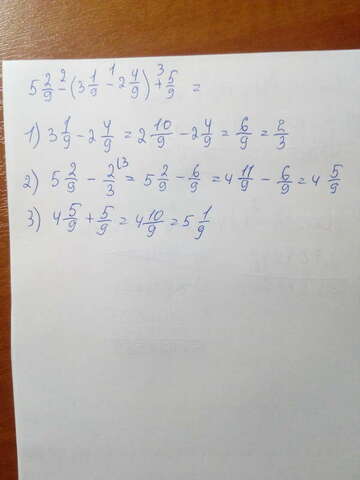 5 2/9 - (3 1/9 - 2 4/9) + 5/9 =
1) 3 1/9 - 2 4/9 = 2 10/9 - 2 4/9 = 6/9 = 2/3
2) 5 2/9 - 2/3 = 5 2/9 - 6/9 = 4 11/9 - 6/9 = 4 5/9
3) 4 5/9 + 5/9 = 4 10/9 = 5 1/9